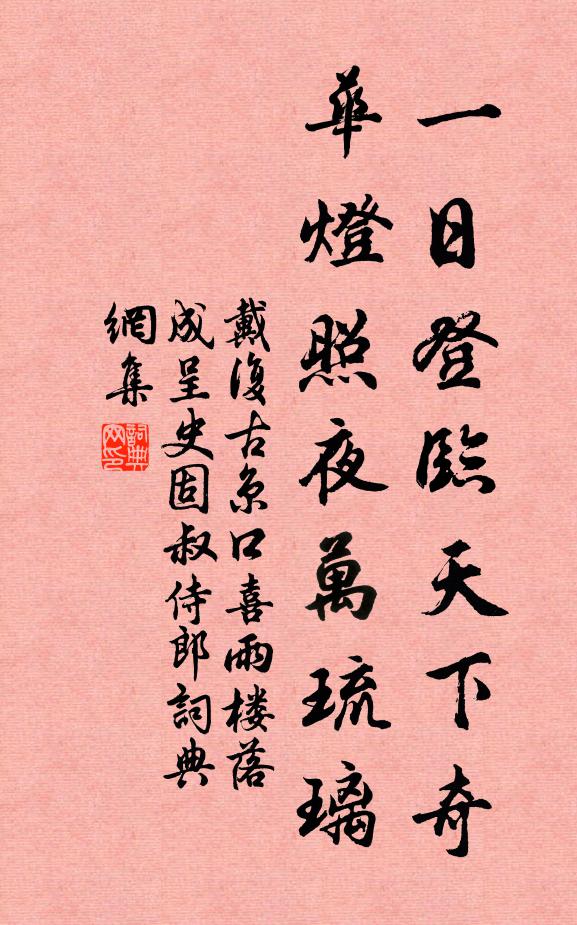 一日登臨天下奇
華燈照夜萬琉璃
戴復古京口喜雨楼落
成呈史固叔侍郎詞典
網集
詞典
网印